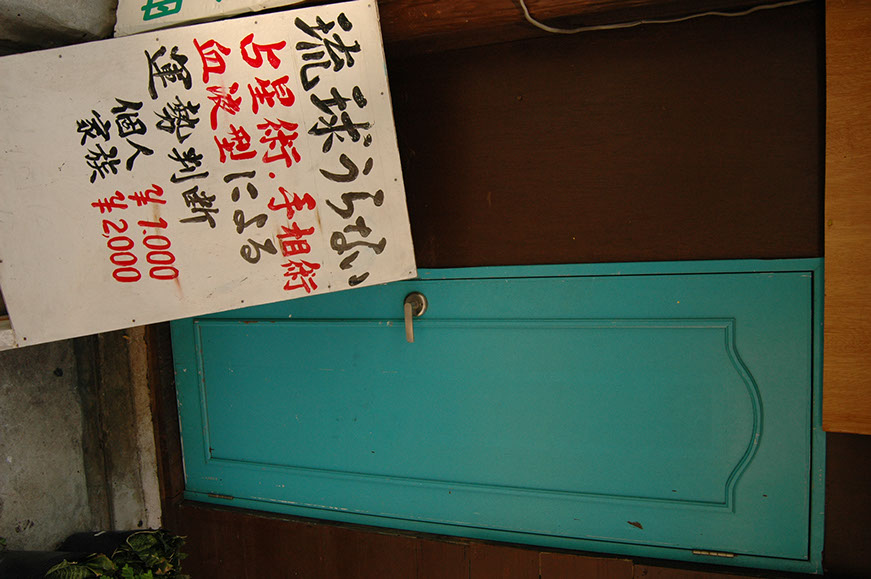 琉球うらない
占星術.手相術
血液型による
運勢判断
個人 ¥1.000
家族 ¥2,000